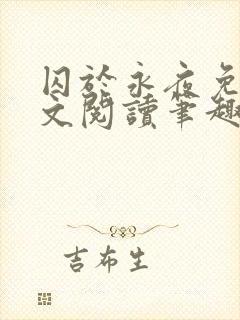 囚於永夜免
文閱讀筆趣
吉布生